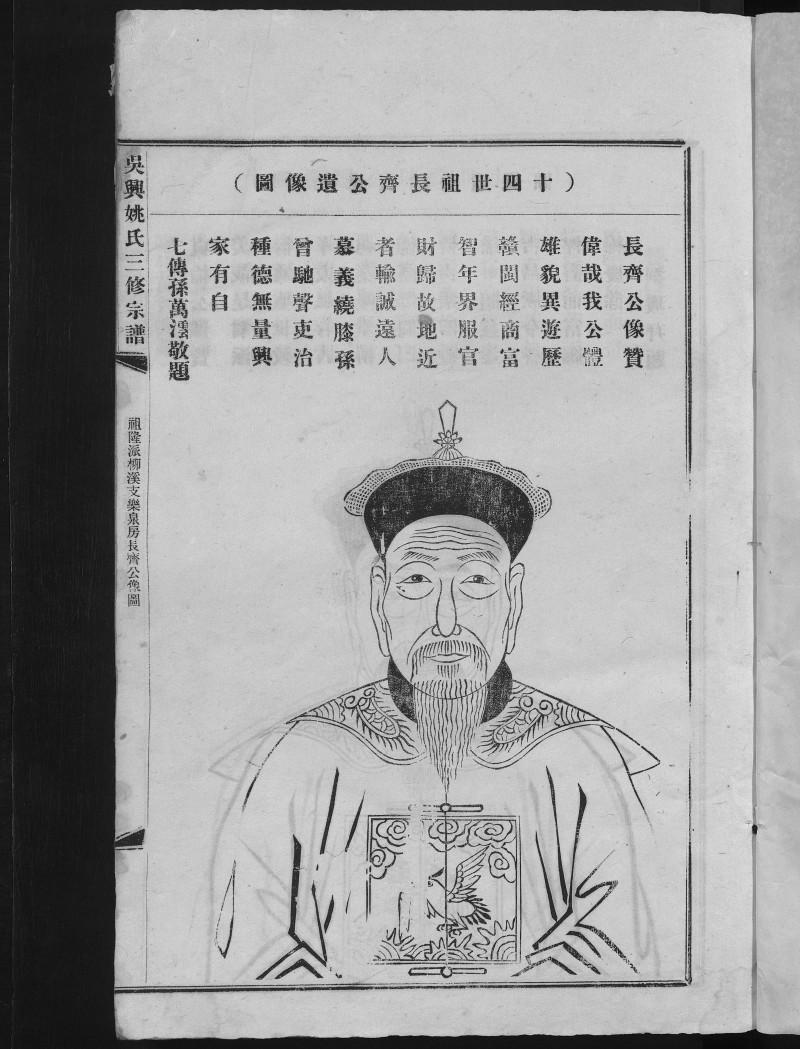 （十四世祖長齊公遺像圖）
長齊公像贊
偉哉我公體
雄貌異遊歷
贛閩經商富
智年界服官
財歸故地近
者輸誠遠人
慕義繞膝孫
曾馳聲吏治
種德無量興
家有自
七傳孫萬澐敬題
吳興姚氏三修宗譜
祖隆派柳溪支樂泉房長齊公像圖